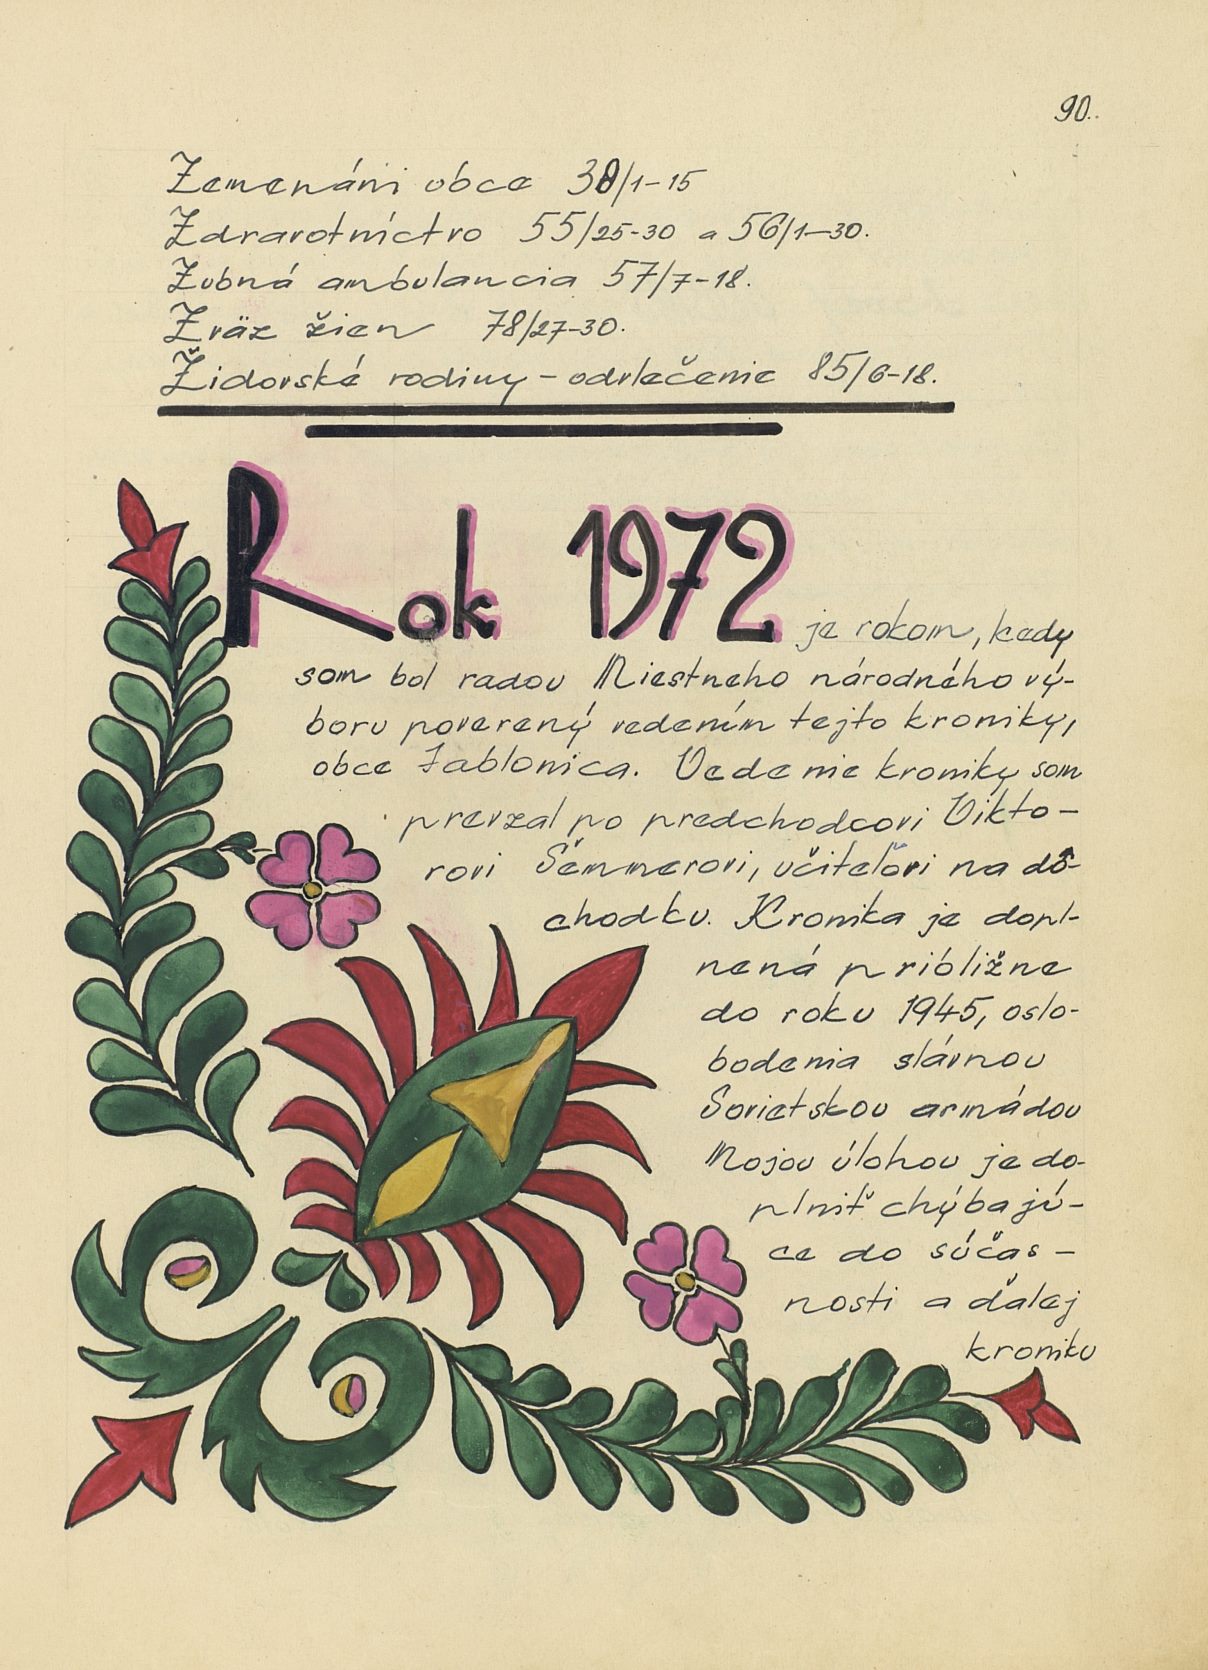 90.
Zemenáni obce 38/1-15
Zdravotníctvo 55/25-30 a 56/1-30.
Zubná ambulancia 57/7-18.
Zväz žien 78/27-30.
Židovské rodiny - odvlečenie 85/6-18.
Rok 1972 je rokom, kedy
som bol radou Miestneho národného vý-
boru poverený vedením tejto kroniky,
obce Jablonica. Vedenie kroniky som
prevzal po predchodcovi Vikto-
rovi Šemmerovi, učiteľovi na dô-
chodku. Kronika je dopl-
nená približne
do roku 1945, oslo-
bodenia slávnou
Sovietskou armádou
Mojou úlohou je do-
plniť chýbajú-
ce do súčas-
nosti a ďalej
kroniku